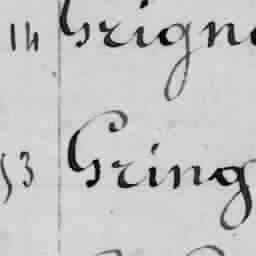 14 Grign
53 Gring